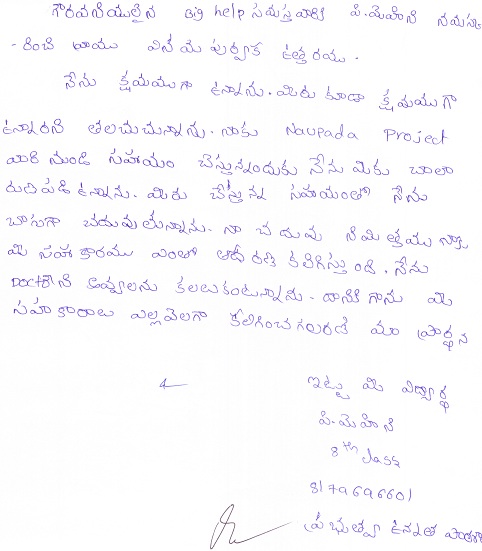 గౌరవనియులైన Big help సమస్త వారికి పి.మెహిని నమస్క
-రించి వ్రాయు వినేయ పుర్వక ఉత్తరము.
నేను క్షేమముగా ఉన్నాను. మిరు కూడా క్షేమముగా
ఉన్నారని తలచుచున్నాను. నాకు Naupada Project
వారి నుండి సహాయం చేస్తున్నందుకు నేను మికు చాలా
రుణపడి ఉన్నాను. మిరు చేస్తున్న సహాయంతో నేను
బాగుగా చదువుతున్నాను. నా చదువు నిమిత్తము
మి సహాకారము ఎంతో కలిగిస్తుంది. నేను
Doctorని అవ్వాలను కలలుకంటున్నాను. దానికి గాను మి
సహకారాలు ఎల్లవెలగా కలిగించగలరని మా ప్రార్థన
ఇట్లు మి విద్యార్థి
పి.మెహిని
8th class
8179696601
ప్రభుత్వ ఉన్నత పాఠశాల